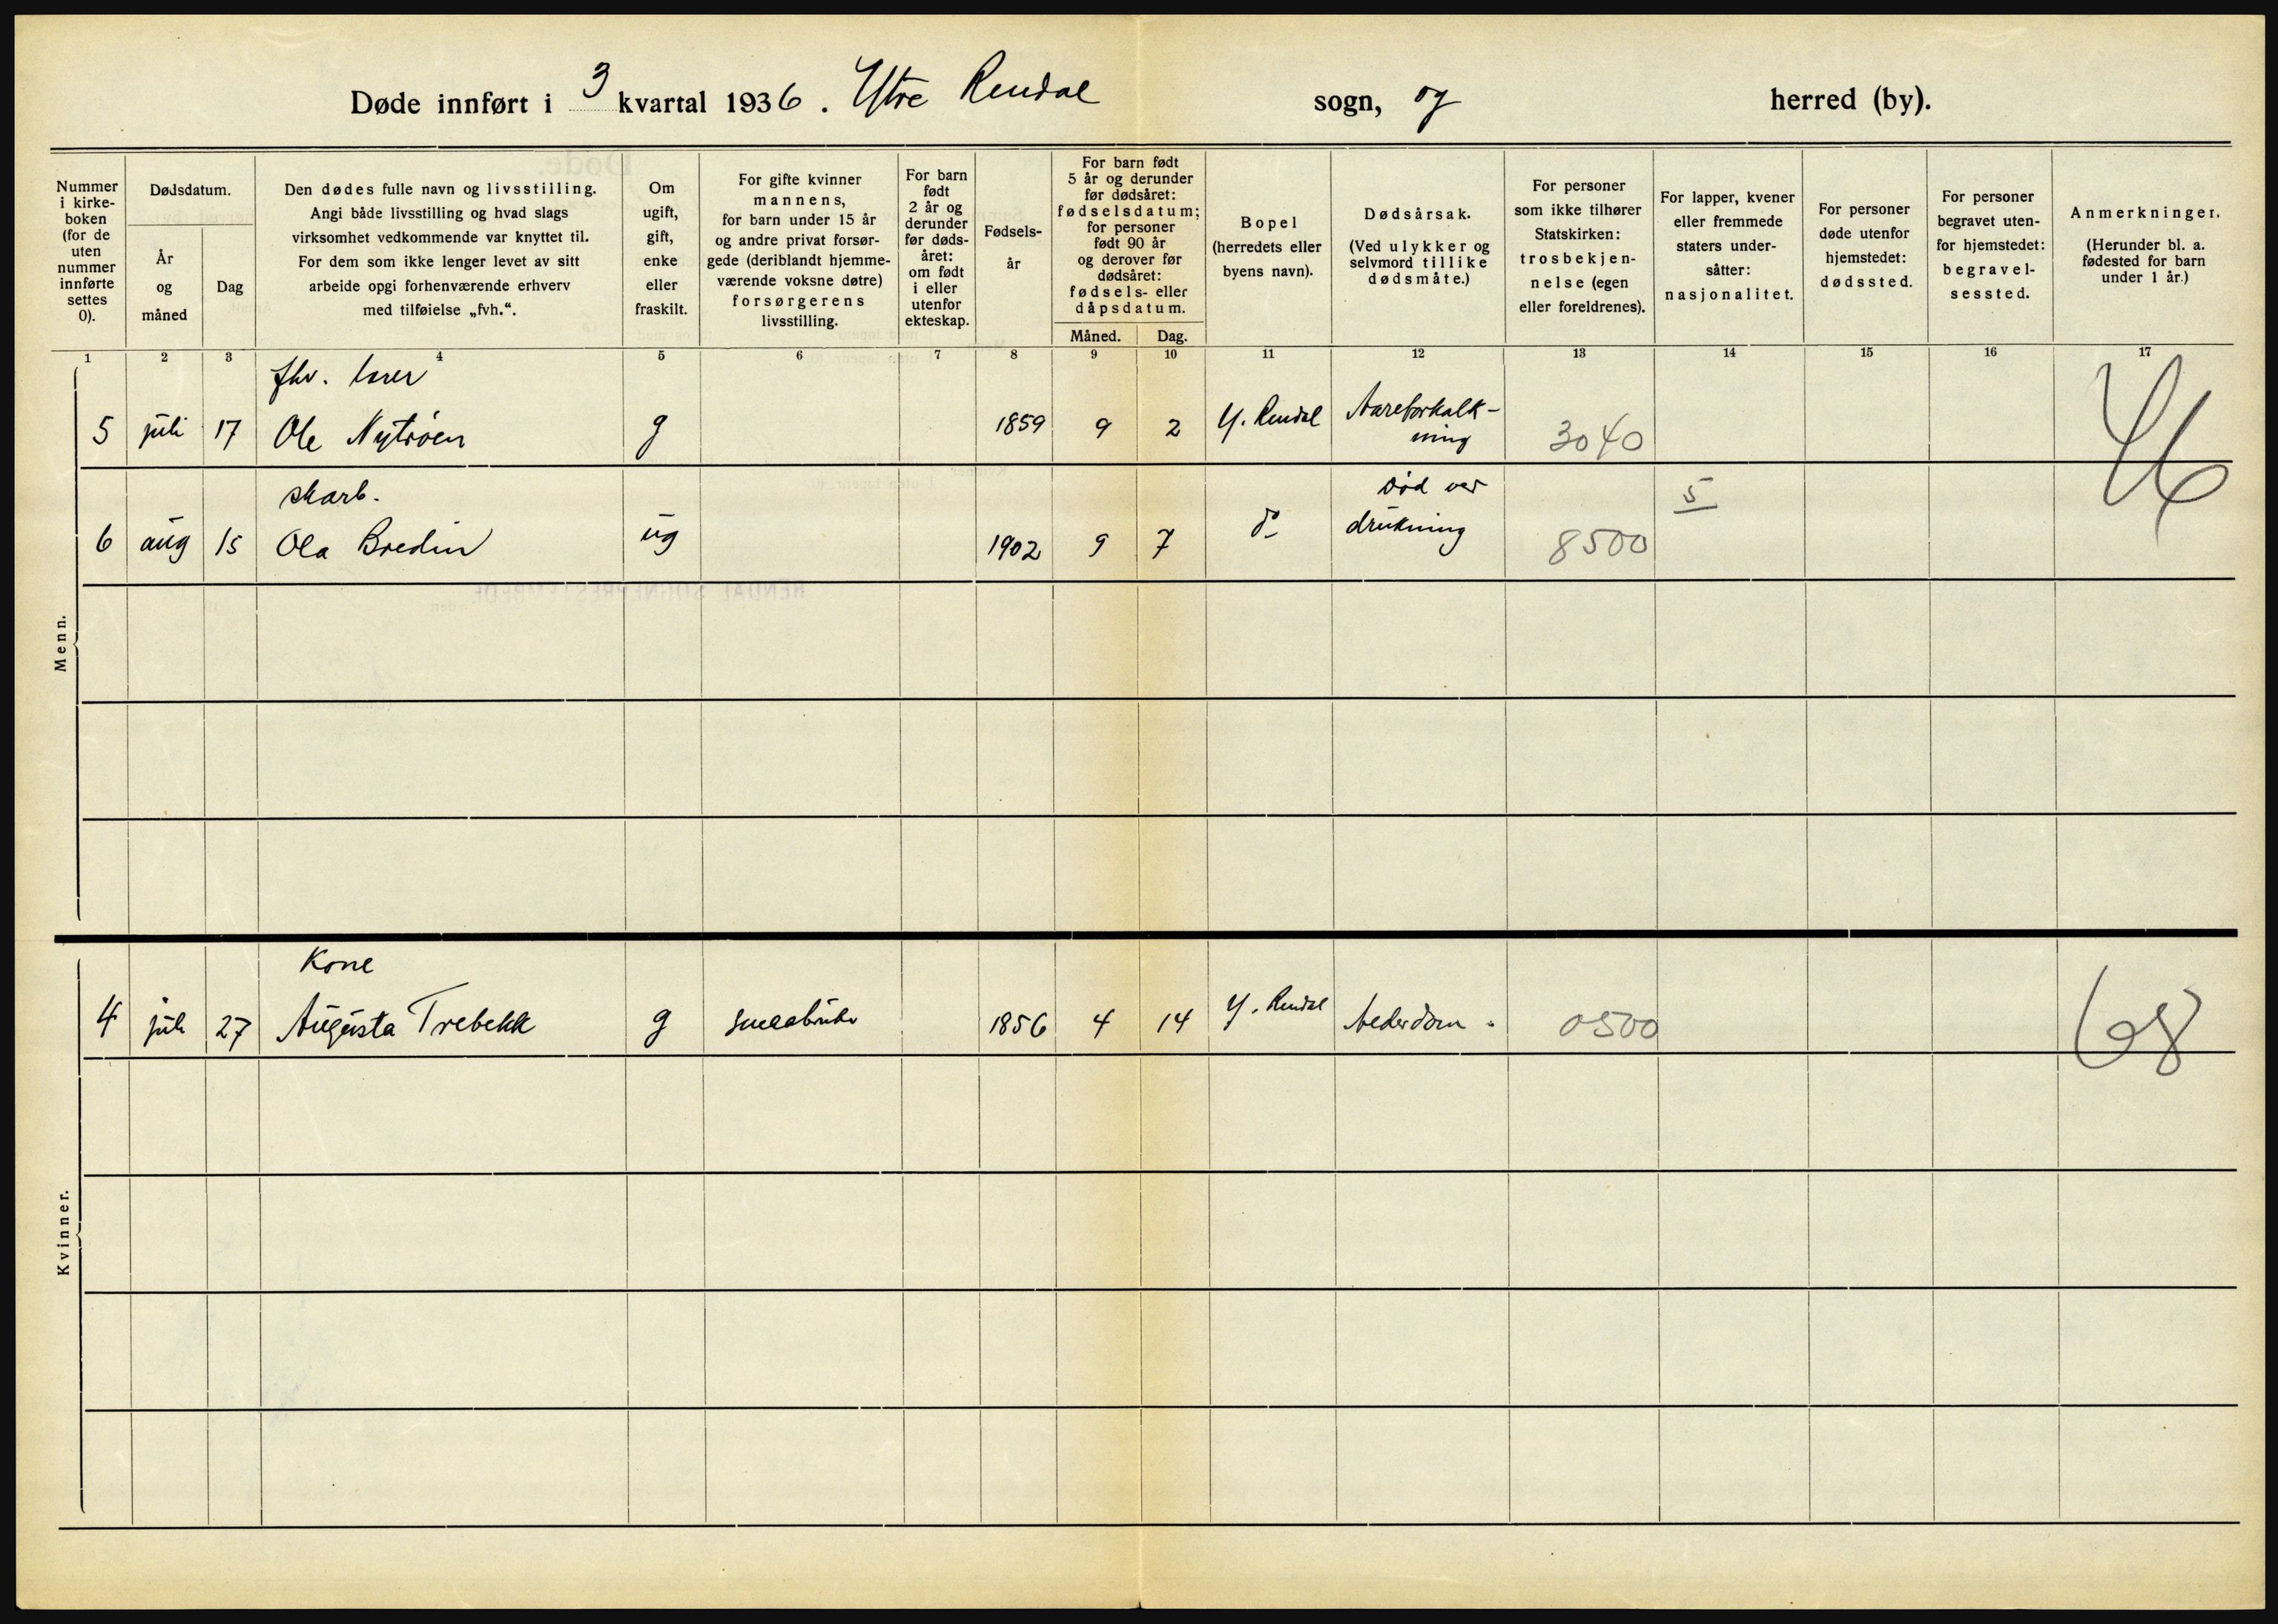 Døde innført i 3 kvartal 1936. Ytre Rendal sogn, og herred (by).
Nummer i kirke-boken (for de uten nummer innførte settes 0).
Dødsdatum.
År og måned
Dag
Den dødes fulle navn og livsstilling.
Angi både livsstilling og hvad slags
virksomhet vedkommende var knyttet til.
For dem som ikke lenger levet av sitt
arbeide opgi forhenværende erhverv
med tilføielse „fvh.“.
Om
ugift,
gift,
enke
eller
fraskilt.
For gifte kvinner
mannens,
for barn under 15 år
og andre privat forsør-
gede (deriblandt hjemme-
værende voksne døtre)
forsørgerens
livsstilling.
For barn
født
2 år og
derunder
før døds-
året:
om født
i eller
utenfor
ekteskap.
Fødsels-
år
For barn født
5 år og derunder
før dødsåret:
fødselsdatum;
for personer
født 90 år
og derover før
dødsåret:
fødsels- eller
dåpsdatum.
Måned. Dag.
Bopel
(herredets eller
byens navn).
Dødsårsak.
(Ved ulykker og
selvmord tillike
dødsmåte.)
For personer
som ikke tilhører
Statskirken:
trosbekjen-
nelse (egen
eller foreldrenes).
For lapper, kvener
eller fremmede
staters under-
såtter:
nasjonalitet.
For personer
døde utenfor
hjemstedet:
dødssted.
For personer
begravet uten-
for hjemstedet:
begravel-
sessted.
Anmerkninger.
(Herunder bl. a.
fødested for barn
under 1 år.)
1 2 3 4 5 6 7 8 9 10 11 12 13 14 15 16 17
Menn.
fhv.
5 juli 17 Ole Nytrøen g 1859 9 2 Y. Rendal Aareforkalk-
ning 3040
skarb.
6 aug 15 Ola Bredin ug 1902 9 7 do død ved
drukning 8500 5
Kvinner.
Kone
4 juli 27 Augusta Trebekk g 1856 4 14 Y. Rendal Alderdom. 0500 68